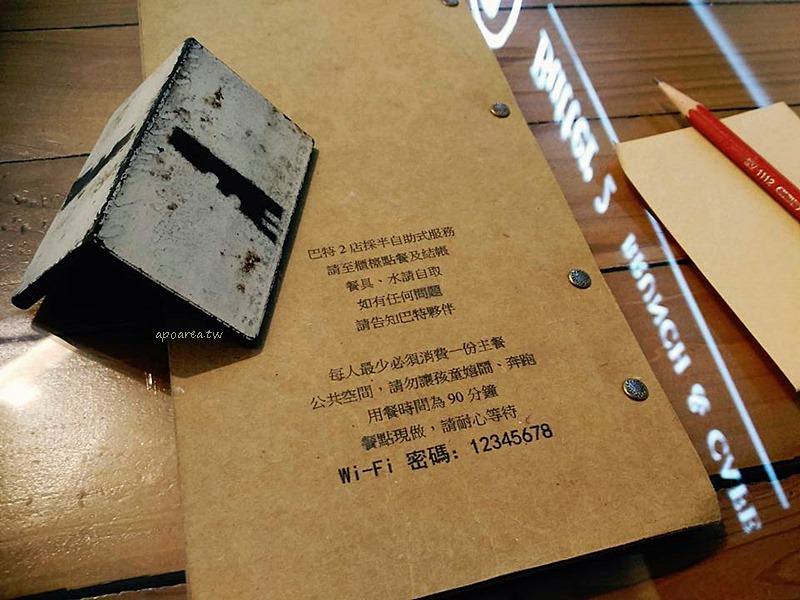 巴特2店採半自助式服務
請至櫃檯點餐及結帳
餐具、水請自取
如有任何問題
請告知巴特夥伴
每人最少必須消費一份主餐
公共空間，請勿讓孩童嬉鬧、奔跑
用餐時間為90分鐘
餐點現做，請耐心等待
Wi-Fi 密碼: 12345678
apoarea.tw